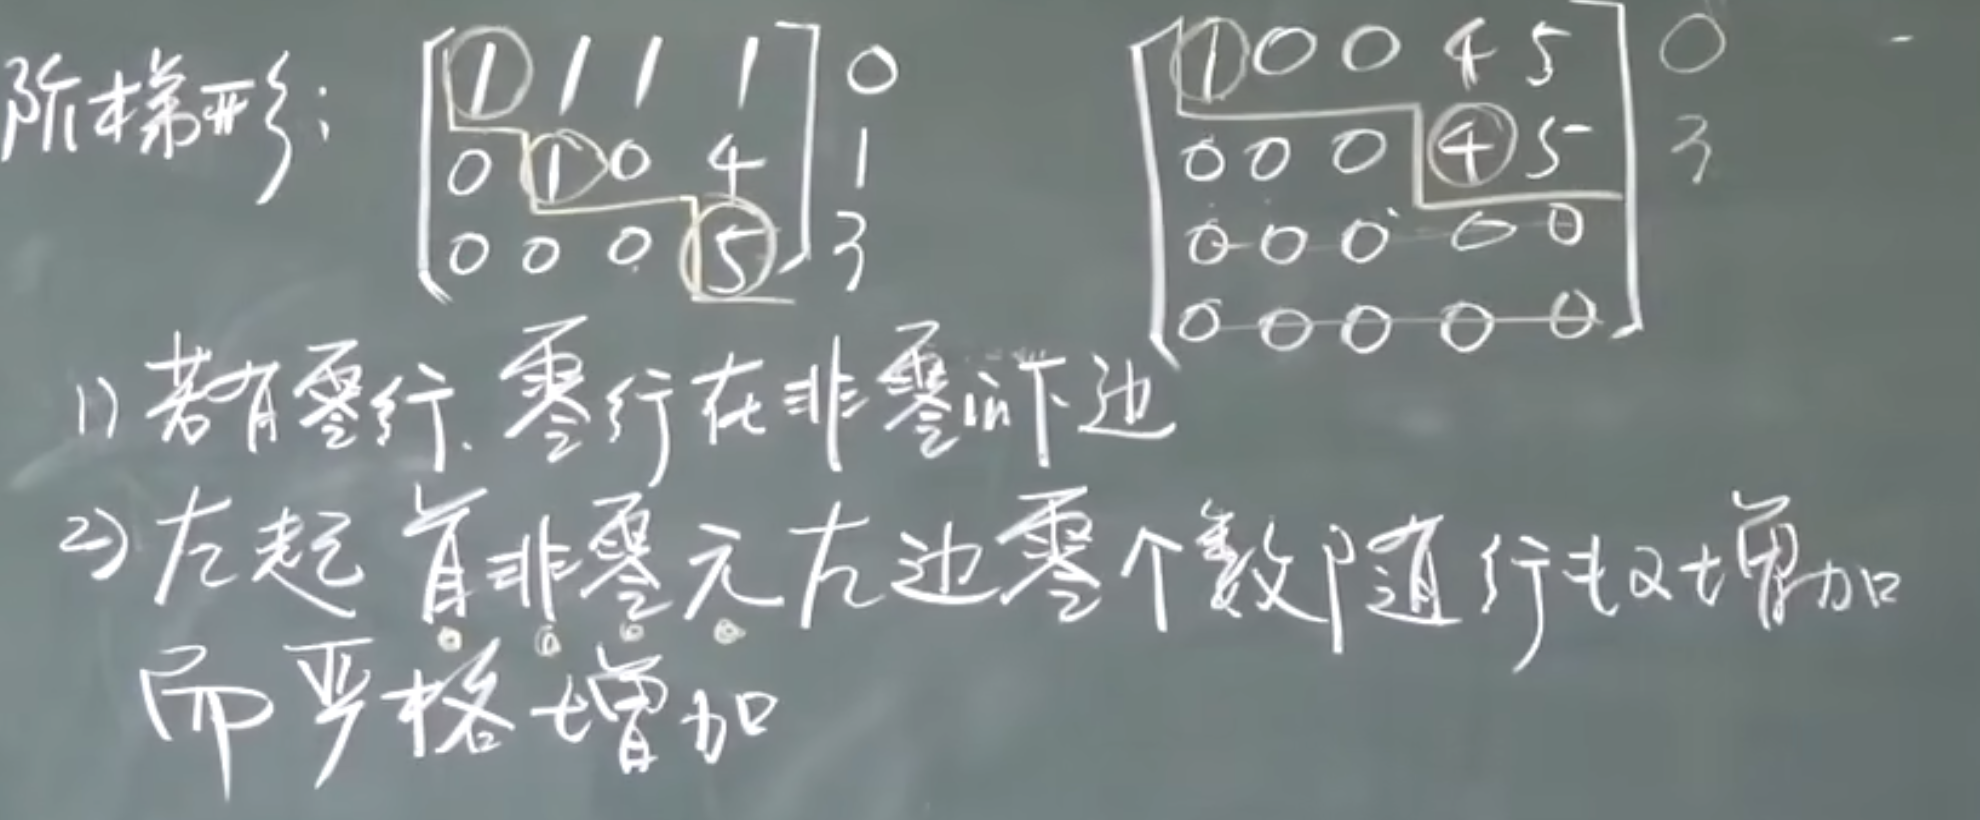 阶梯形: 1 1 1 1 0 1 0 0 4 5 0
0 1 0 4 1 0 0 0 4 5 3
0 0 0 5 3 0 0 0 0 0
0 0 0 0 0
1) 若有零行. 零行在非零行下边
2) 左起首非零元左边零个数随行数增加
而严格增加